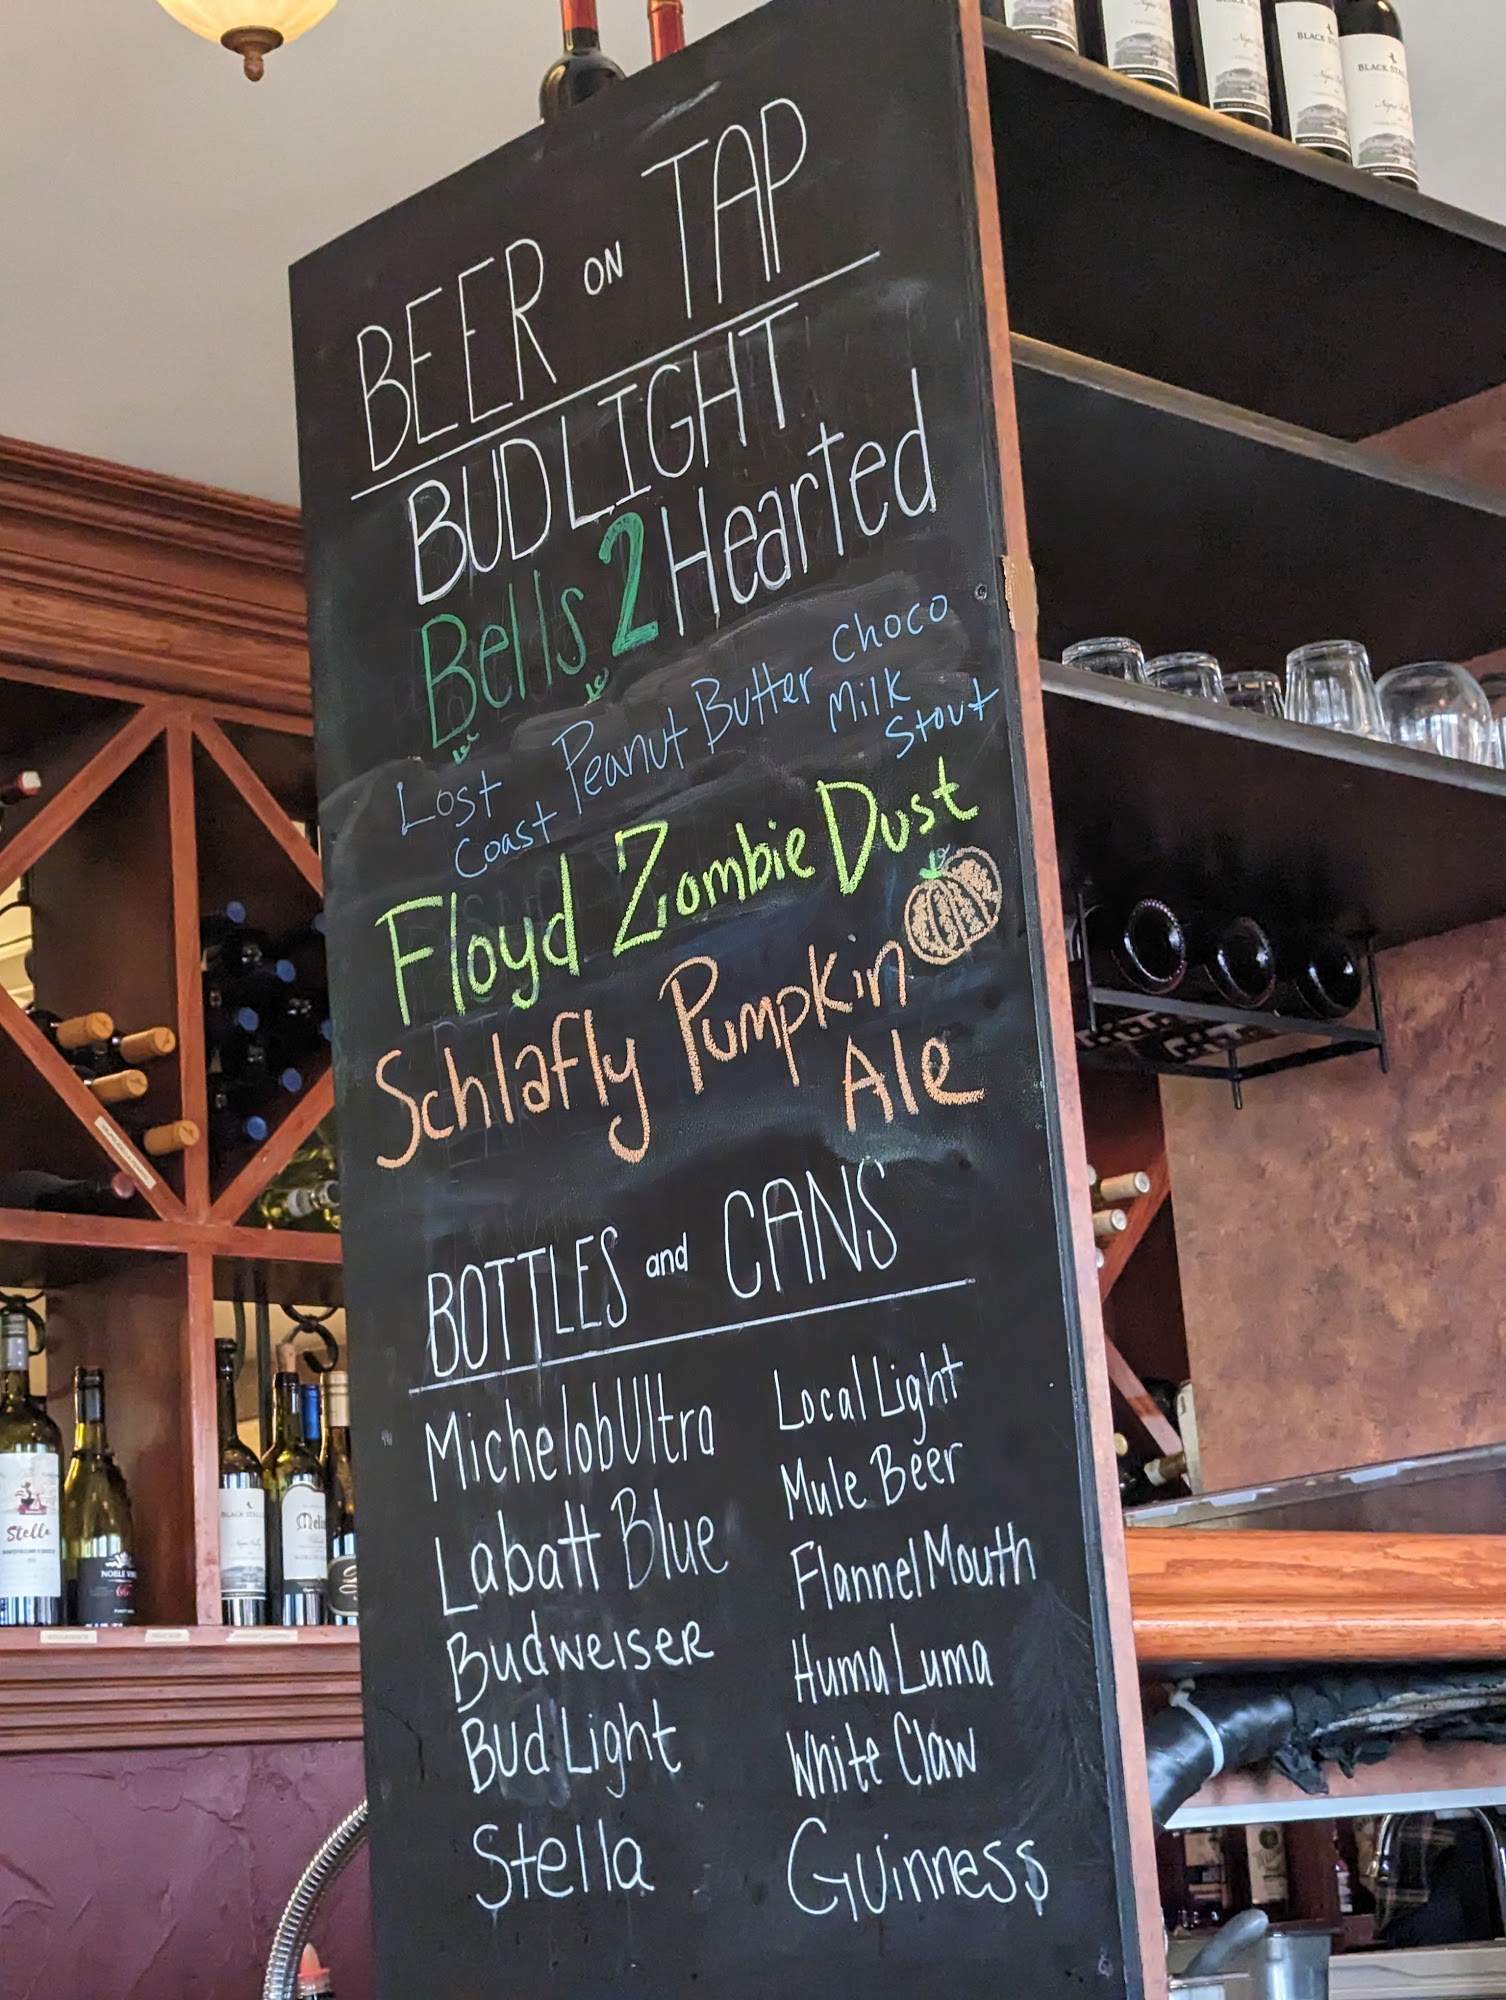 BEER ON TAP
BUD LIGHT
Bells 2 Hearted
Lost Coast Peanut Butter Choco Milk Stout
Floyd Zombie Dust
Schlafly Pumpkin Ale
BOTTLES and CANS
Michelob Ultra
Labatt Blue
Budweiser
Bud Light
Stella
Local Light
Mule Beer
Flannel Mouth
Huma Luma
White Claw
Guinness
BLACK STALLION
BLACK STALLION
Stella
NOBLE VINES